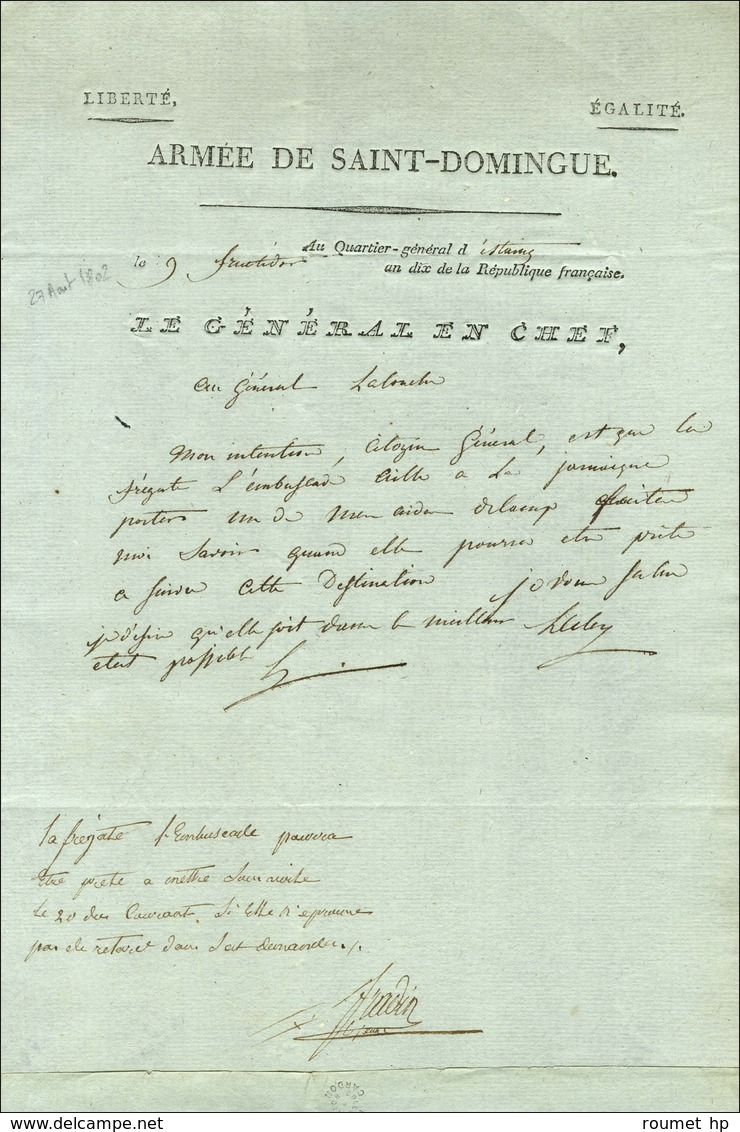 LIBERTÉ,
ÉGALITÉ.
ARMÉE DE SAINT-DOMINGUE.
Au Quartier-général d'estaing
le 9 fructidor an dix de la République française.
27 Aout 1802
LE GÉNÉRAL EN CHEF,
au général Latouche
Mon intention, Citoyen Général, est que la
frégate L'embuscade aille a La jamaique
porter un de mes aides de camp faites
moi savoir quand elle pourra etre prete
a suivre cette Destination je vous salue
je desire qu'elle soit dans le meilleur
etat possible
Leclerc
La frégate l'Embuscade pourra
Etre prete a mettre sous voile
Le 20 du Courant. Si Elle n'eprouve
pas de retard dans Ses demandes./.
CARDON
roumet hp